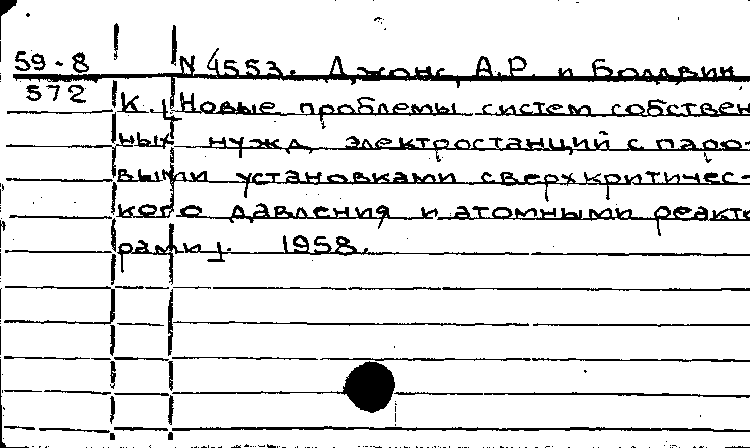 59-8
572
N 4553. Джонс, А.Р. и Болдвин
К. [Новые проблемы систем собствен
ных нужд электростанций с паро-
выми установками сверхкритичес-
кого давления и атомными реакто
рами]. 1958.